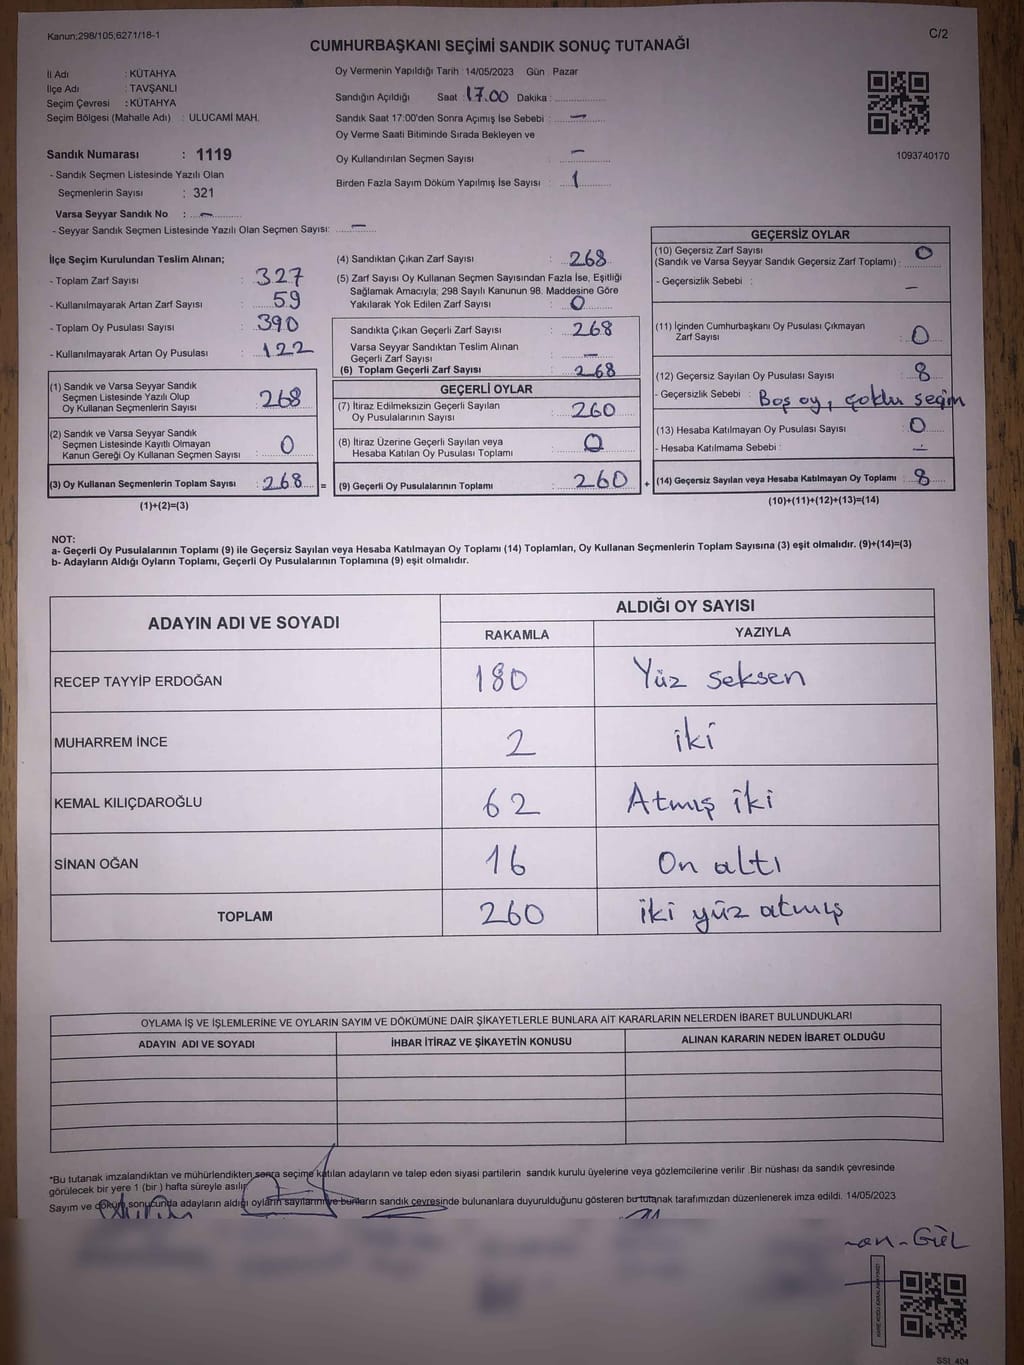 Kanun;298/105,6271/18-1
C/2
CUMHURBAŞKANI SEÇİMİ SANDIK SONUÇ TUTANAĞI
İl Adı : KÜTAHYA
İlçe Adı : TAVŞANLI
Seçim Çevresi : KÜTAHYA
Seçim Bölgesi (Mahalle Adı) : ULUCAMİ MAH.
Sandık Numarası : 1119
- Sandık Seçmen Listesinde Yazılı Olan
Seçmenlerin Sayısı : 321
Varsa Seyyar Sandık No : –
- Seyyar Sandık Seçmen Listesinde Yazılı Olan Seçmen Sayısı: –
Oy Vermenin Yapıldığı Tarih : 14/05/2023 Gün : Pazar
Sandığın Açıldığı Saat : 17.00 Dakika :
Sandık Saat 17:00'den Sonra Açımış İse Sebebi : –
Oy Verme Saati Bitiminde Sırada Bekleyen ve
Oy Kullandırılan Seçmen Sayısı : –
Birden Fazla Sayım Döküm Yapılmış İse Sayısı : 1
1093740170
İlçe Seçim Kurulundan Teslim Alınan;
- Toplam Zarf Sayısı : 327
- Kullanılmayarak Artan Zarf Sayısı : 59
- Toplam Oy Pusulası Sayısı : 390
- Kullanılmayarak Artan Oy Pusulası : 122
(1) Sandık ve Varsa Seyyar Sandık
Seçmen Listesinde Yazılı Olup
Oy Kullanan Seçmenlerin Sayısı : 268
(2) Sandık ve Varsa Seyyar Sandık
Seçmen Listesinde Kayıtlı Olmayan
Kanun Gereği Oy Kullanan Seçmen Sayısı : 0
(3) Oy Kullanan Seçmenlerin Toplam Sayısı : 268 =
(1)+(2)=(3)
(4) Sandıktan Çıkan Zarf Sayısı : 268
(5) Zarf Sayısı Oy Kullanan Seçmen Sayısından Fazla İse, Eşitliği
Sağlamak Amacıyla; 298 Sayılı Kanunun 98. Maddesine Göre
Yakılarak Yok Edilen Zarf Sayısı : 0
Sandıkta Çıkan Geçerli Zarf Sayısı : 268
Varsa Seyyar Sandıktan Teslim Alınan
Geçerli Zarf Sayısı : –
(6) Toplam Geçerli Zarf Sayısı : 268
GEÇERLİ OYLAR
(7) İtiraz Edilmeksizin Geçerli Sayılan
Oy Pusulalarının Sayısı : 260
(8) İtiraz Üzerine Geçerli Sayılan veya
Hesaba Katılan Oy Pusulası Toplamı : 0
(9) Geçerli Oy Pusulalarının Toplamı : 260 +
GEÇERSİZ OYLAR
(10) Geçersiz Zarf Sayısı
(Sandık ve Varsa Seyyar Sandık Geçersiz Zarf Toplamı) : 0
- Geçersizlik Sebebi : –
(11) İçinden Cumhurbaşkanı Oy Pusulası Çıkmayan
Zarf Sayısı : 0
(12) Geçersiz Sayılan Oy Pusulası Sayısı : 8
- Geçersizlik Sebebi : Boş oy, çoklu seçim
(13) Hesaba Katılmayan Oy Pusulası Sayısı : 0
- Hesaba Katılmama Sebebi : –
(14) Geçersiz Sayılan veya Hesaba Katılmayan Oy Toplamı : 8
(10)+(11)+(12)+(13)=(14)
NOT:
a- Geçerli Oy Pusulalarının Toplamı (9) ile Geçersiz Sayılan veya Hesaba Katılmayan Oy Toplamı (14) Toplamları, Oy Kullanan Seçmenlerin Toplam Sayısına (3) eşit olmalıdır. (9)+(14)=(3)
b- Adayların Aldığı Oyların Toplamı, Geçerli Oy Pusulalarının Toplamına (9) eşit olmalıdır.
ADAYIN ADI VE SOYADI
ALDIĞI OY SAYISI
RAKAMLA YAZIYLA
RECEP TAYYİP ERDOĞAN 180 Yüz seksen
MUHARREM İNCE 2 iki
KEMAL KILIÇDAROĞLU 62 Atmış iki
SİNAN OĞAN 16 On altı
TOPLAM 260 iki yüz atmış
OYLAMA İŞ VE İŞLEMLERİNE VE OYLARIN SAYIM VE DÖKÜMÜNE DAİR ŞİKAYETLERLE BUNLARA AİT KARARLARIN NELERDEN İBARET BULUNDUKLARI
ADAYIN ADI VE SOYADI İHBAR İTİRAZ VE ŞİKAYETİN KONUSU ALINAN KARARIN NEDEN İBARET OLDUĞU
*Bu tutanak imzalandıktan ve mühürlendikten sonra seçime katılan adayların ve talep eden siyasi partilerin sandık kurulu üyelerine veya gözlemcilerine verilir .Bir nüshası da sandık çevresinde
görülecek bir yere 1 (bir ) hafta süreyle asılır.
Sayım ve döküm sonucunda adayların aldığı oyların sayılarını ve bunların sandık çevresinde bulunanlara duyurulduğunu gösteren bu tutanak tarafımızdan düzenlenerek imza edildi. 14/05/2023
GÜL